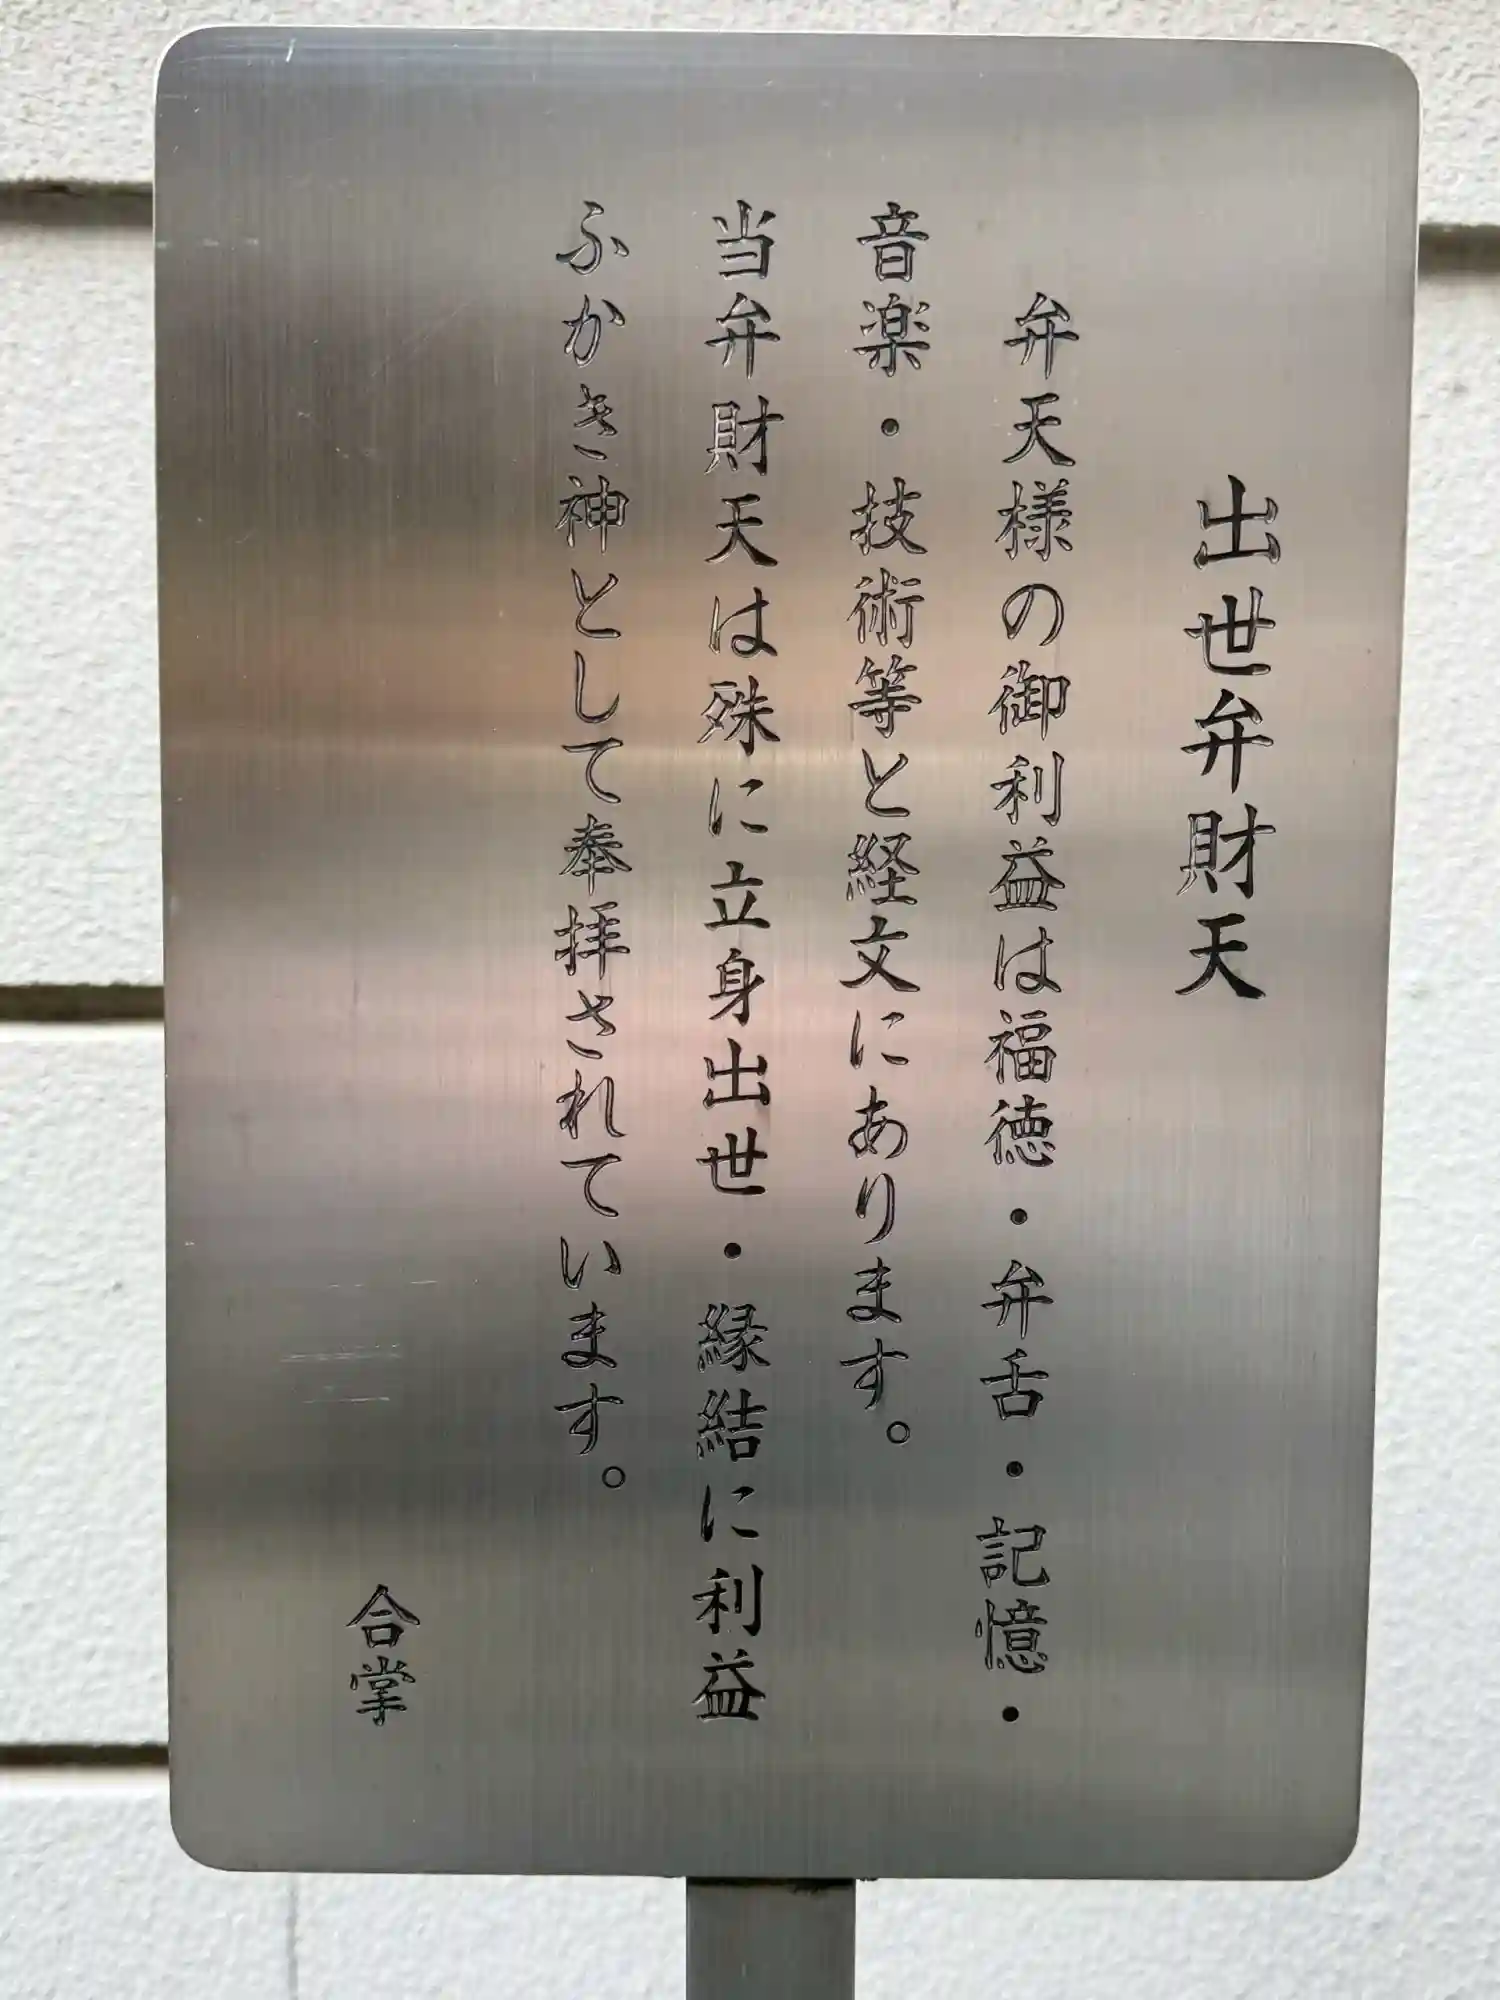 出世弁財天
弁天様の御利益は福徳・弁舌・記憶・
音楽・技術等と経文にあります。
当弁財天は殊に立身出世・縁結に利益
ふかき神として奉拝されています。
合掌